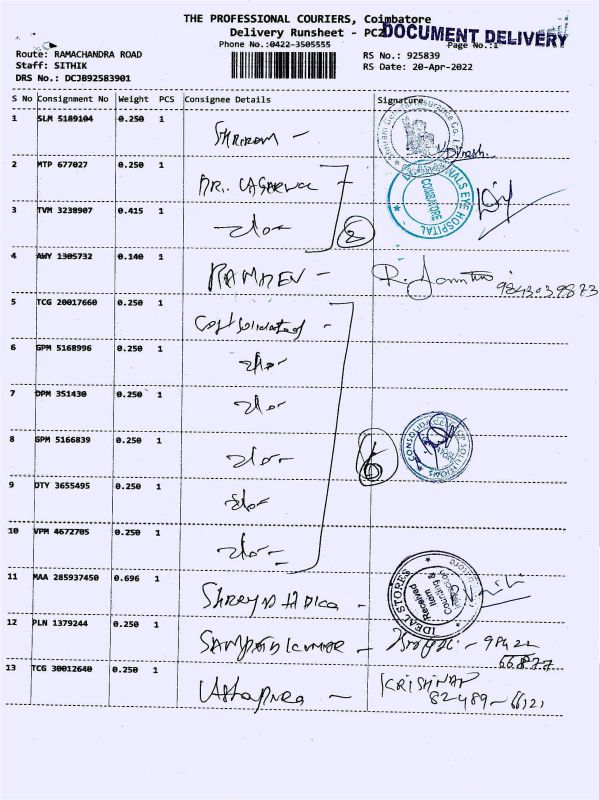 THE PROFESSIONAL COURIERS, Coimbatore
Delivery Runsheet - PC2
DOCUMENT DELIVERY
Phone No.:0422-3505555
Page No.:1
Route: RAMACHANDRA ROAD
RS No.: 925839
Staff: SITHIK
RS Date: 20-Apr-2022
DRS No.: DCJB92583901
S No Consignment No Weight PCS Consignee Details Signature
1 SLM 5189104 0.250 1
SHRIRAM -
2 MTP 677027 0.250 1
DR.. AGARWAL
EYE HOSPITAL
COIMBATORE
3 TVM 3238907 0.415 1
2
4 AWY 1305732 0.140 1
RAMDEV -
9843039873
5 TCG 20017660 0.250 1
Consolidated -
6 GPM 5168996 0.250 1
7 DPM 351430 0.250 1
8 GPM 5166839 0.250 1
6
CONSOLIDATED
SOLUTIONS
9 DTY 3655495 0.250 1
10 VPM 4672705 0.250 1
11 MAA 285937450 0.696 1
IDEAL STORES
Received
Item
Counting &
12 PLN 1379244 0.250 1
SAMPATHKUMAR - 98422
66877
13 TCG 30012640 0.250 1
KRISHNAN
82489-66121